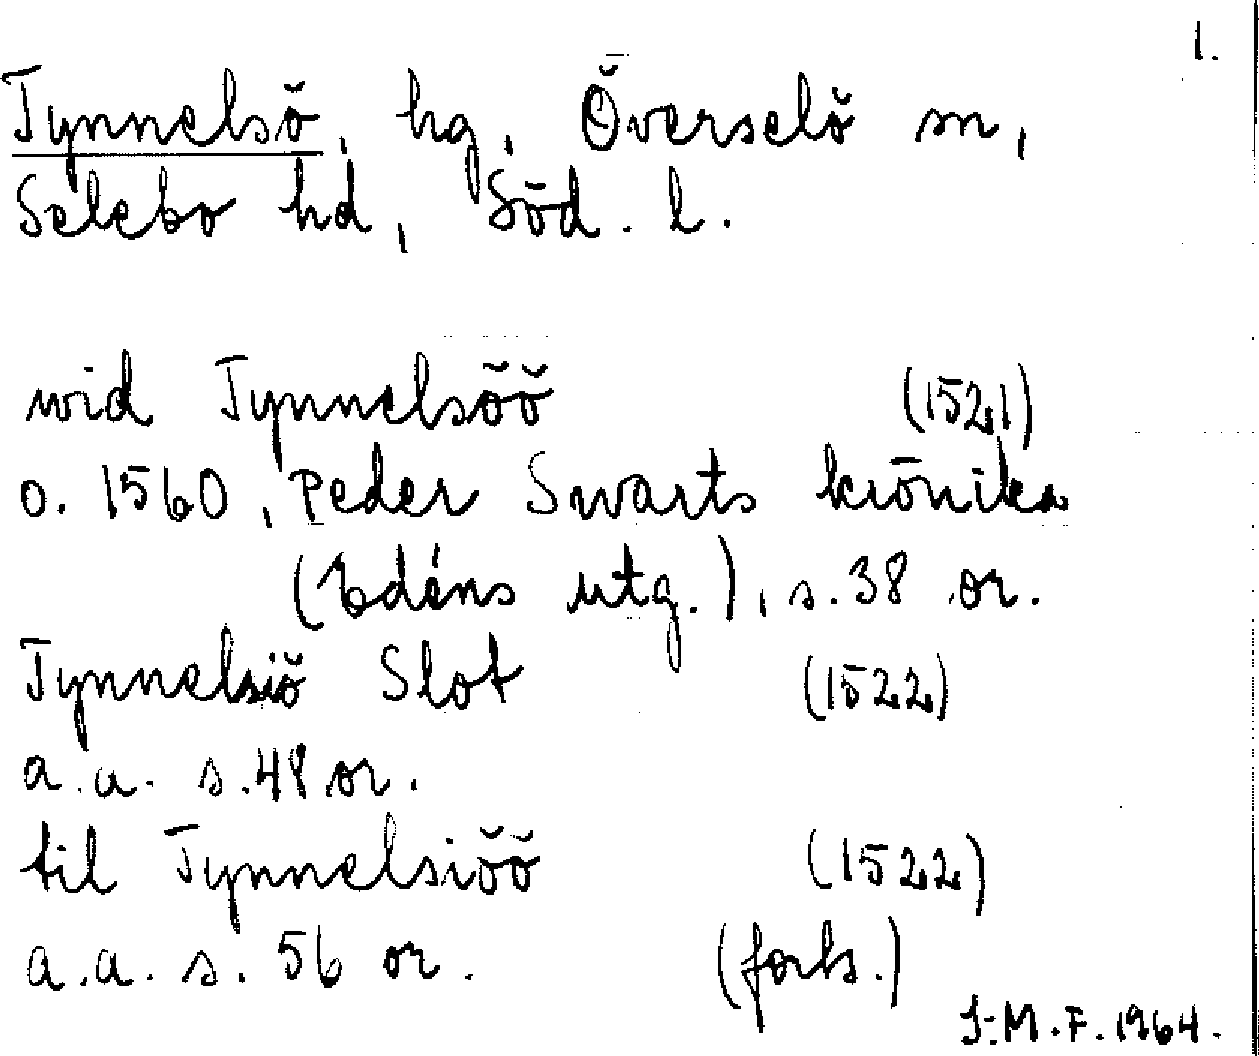 1.
Tynnelsö, hg, Överselö sn,
Selebo hd, Söd. l.
wid Tynnelsöö (1521)
o. 1560, Peder Swarts krönika
(Edéns utg.), s. 38 or.
Tynnelsiö Slot (1522)
a.a. s. 48 or.
til Tynnelsiöö (1522)
a.a. s. 56 or. (forts.)
I:M.F. 1964.